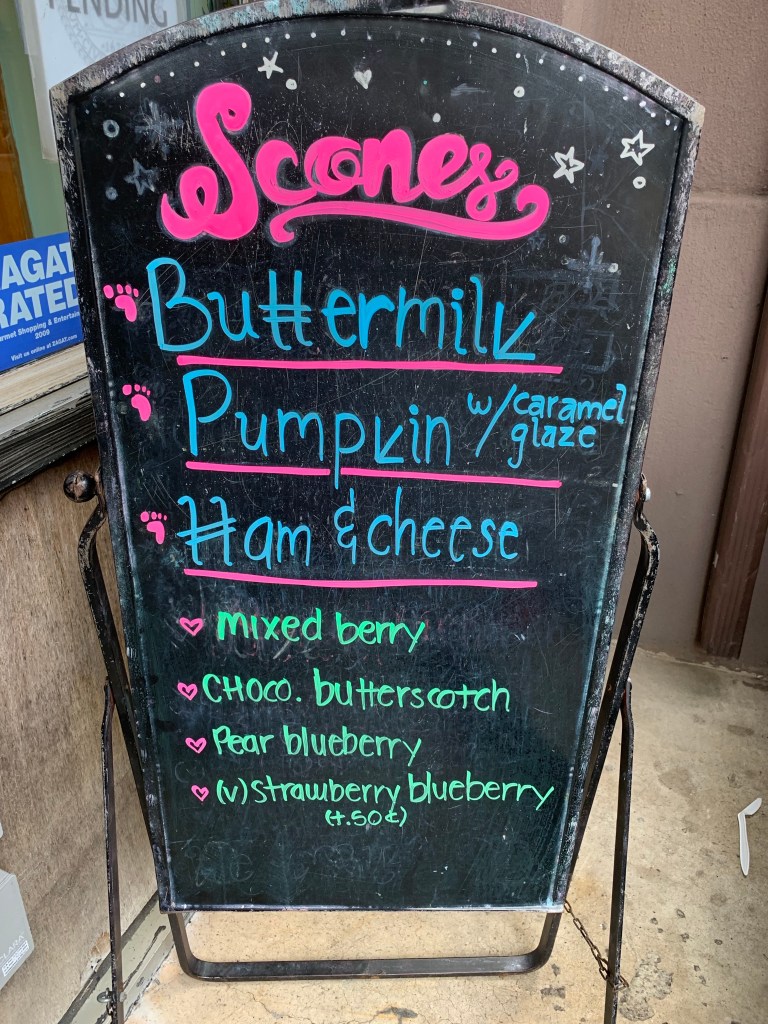 PENDING
Scones
Buttermilk
Pumpkin w/ caramel
glaze
Ham & cheese
mixed berry
CHOCO. butterscotch
Pear blueberry
(v) Strawberry blueberry
(+.50¢)
AGAT
RATED
urmet Shopping & Entertain
2009
Visit us online at ZAGAT.com
CLARA